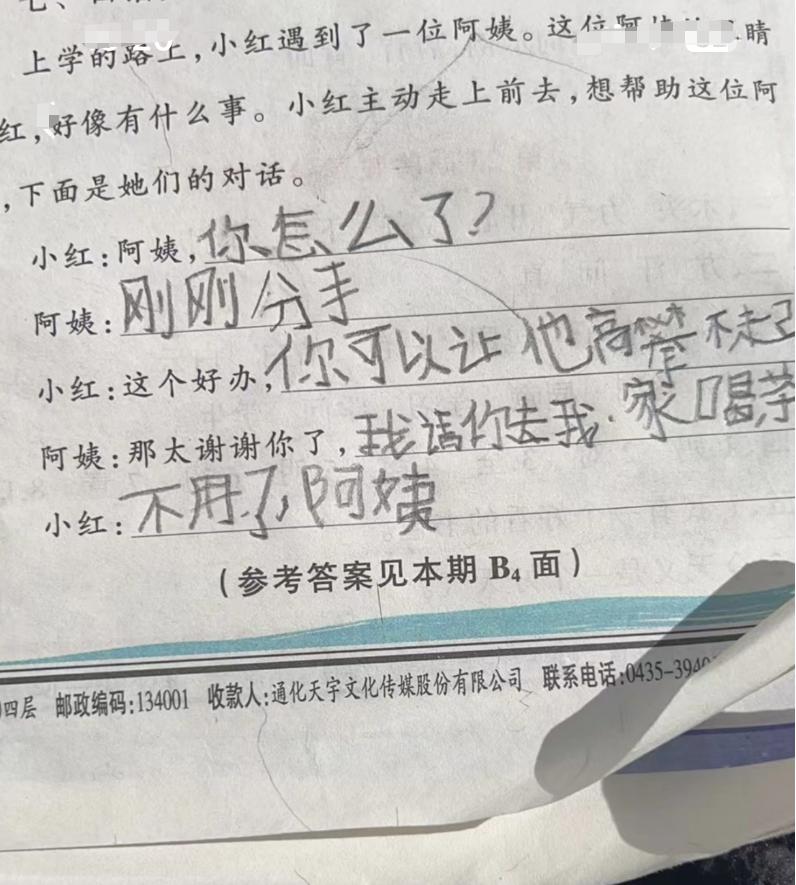 上学的路上,小红遇到了一位阿姨。这位阿 睛
红,好像有什么事。小红主动走上前去,想帮助这位阿
,下面是她们的对话。
小红:阿姨,你怎么了?
阿姨:刚刚分手
小红:这个好办,你可以让他高攀不起
阿姨:那太谢谢你了,我请你去我家喝茶
小红:不用了,阿姨
(参考答案见本期 B4 面)
四层 邮政编码:134001 收款人:通化天宇文化传媒股份有限公司 联系电话:0435-394